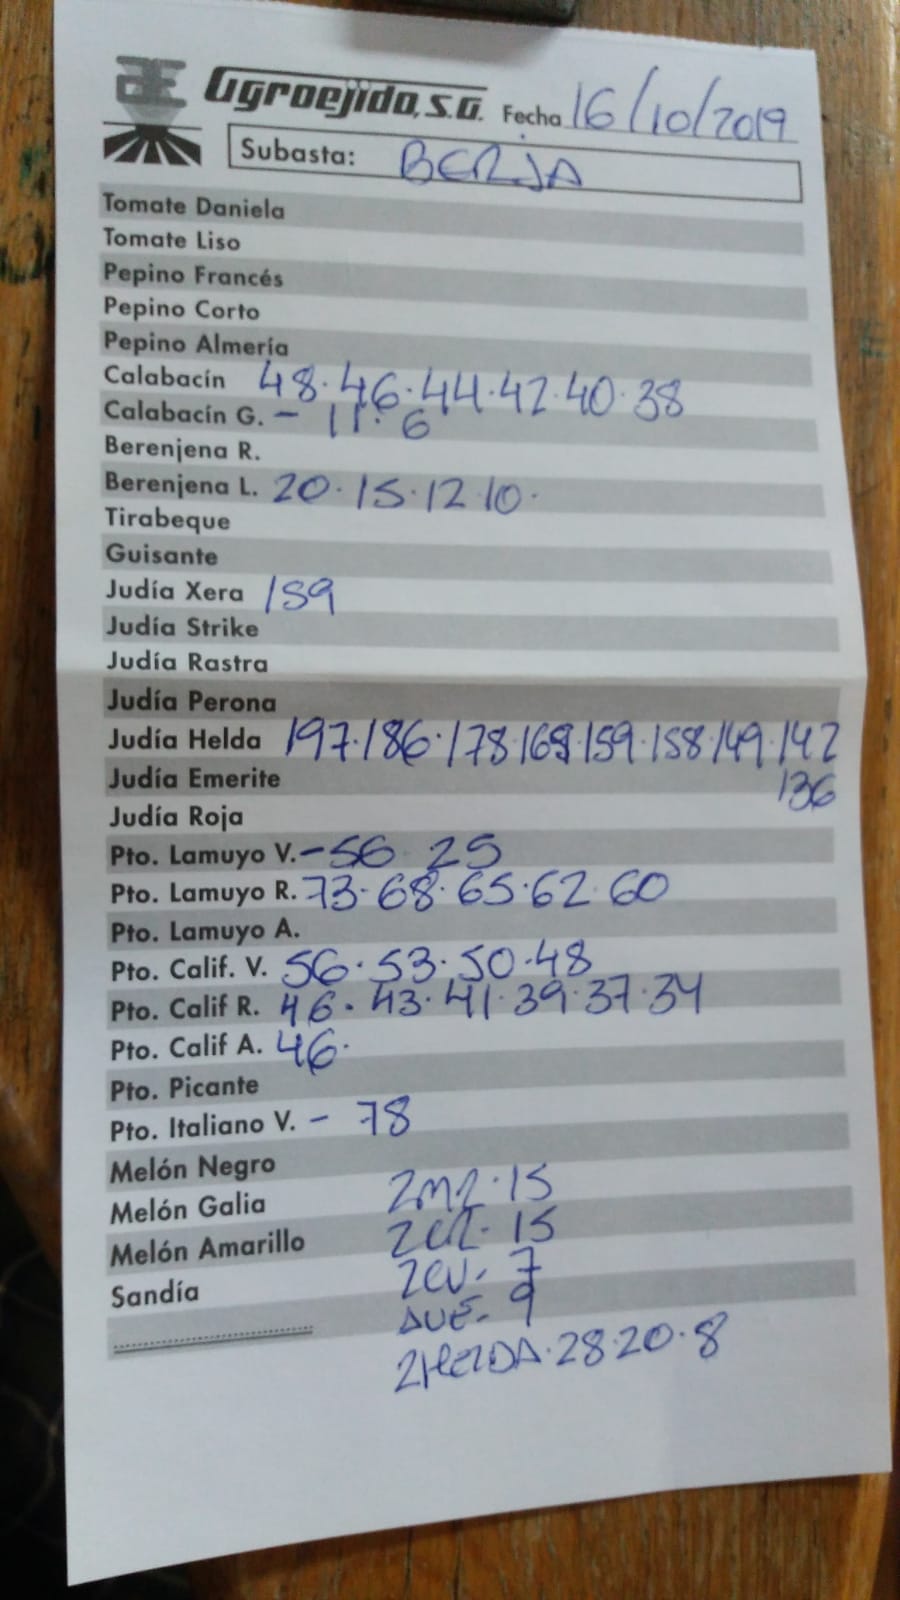 Agroejido, S.A. Fecha 16/10/2019
Subasta: BERJA
Tomate Daniela
Tomate Liso
Pepino Francés
Pepino Corto
Pepino Almería
Calabacín 48·46·44·42·40·38
Calabacín G. - 11·6
Berenjena R.
Berenjena L. 20·15·12·10·
Tirabeque
Guisante
Judía Xera 159
Judía Strike
Judía Rastra
Judía Perona
Judía Helda 197·186·178·168·159·158·149·142
136
Judía Emerite
Judía Roja
Pto. Lamuyo V. -56 25
Pto. Lamuyo R. 73·68·65·62·60
Pto. Lamuyo A.
Pto. Calif. V. 56·53·50·48
Pto. Calif R. 46·43·41·39·37·34
Pto. Calif A. 46·
Pto. Picante
Pto. Italiano V. - 78
Melón Negro
Melón Galia
Melón Amarillo
Sandía
15
15
2CV- 7
9
28·20·8